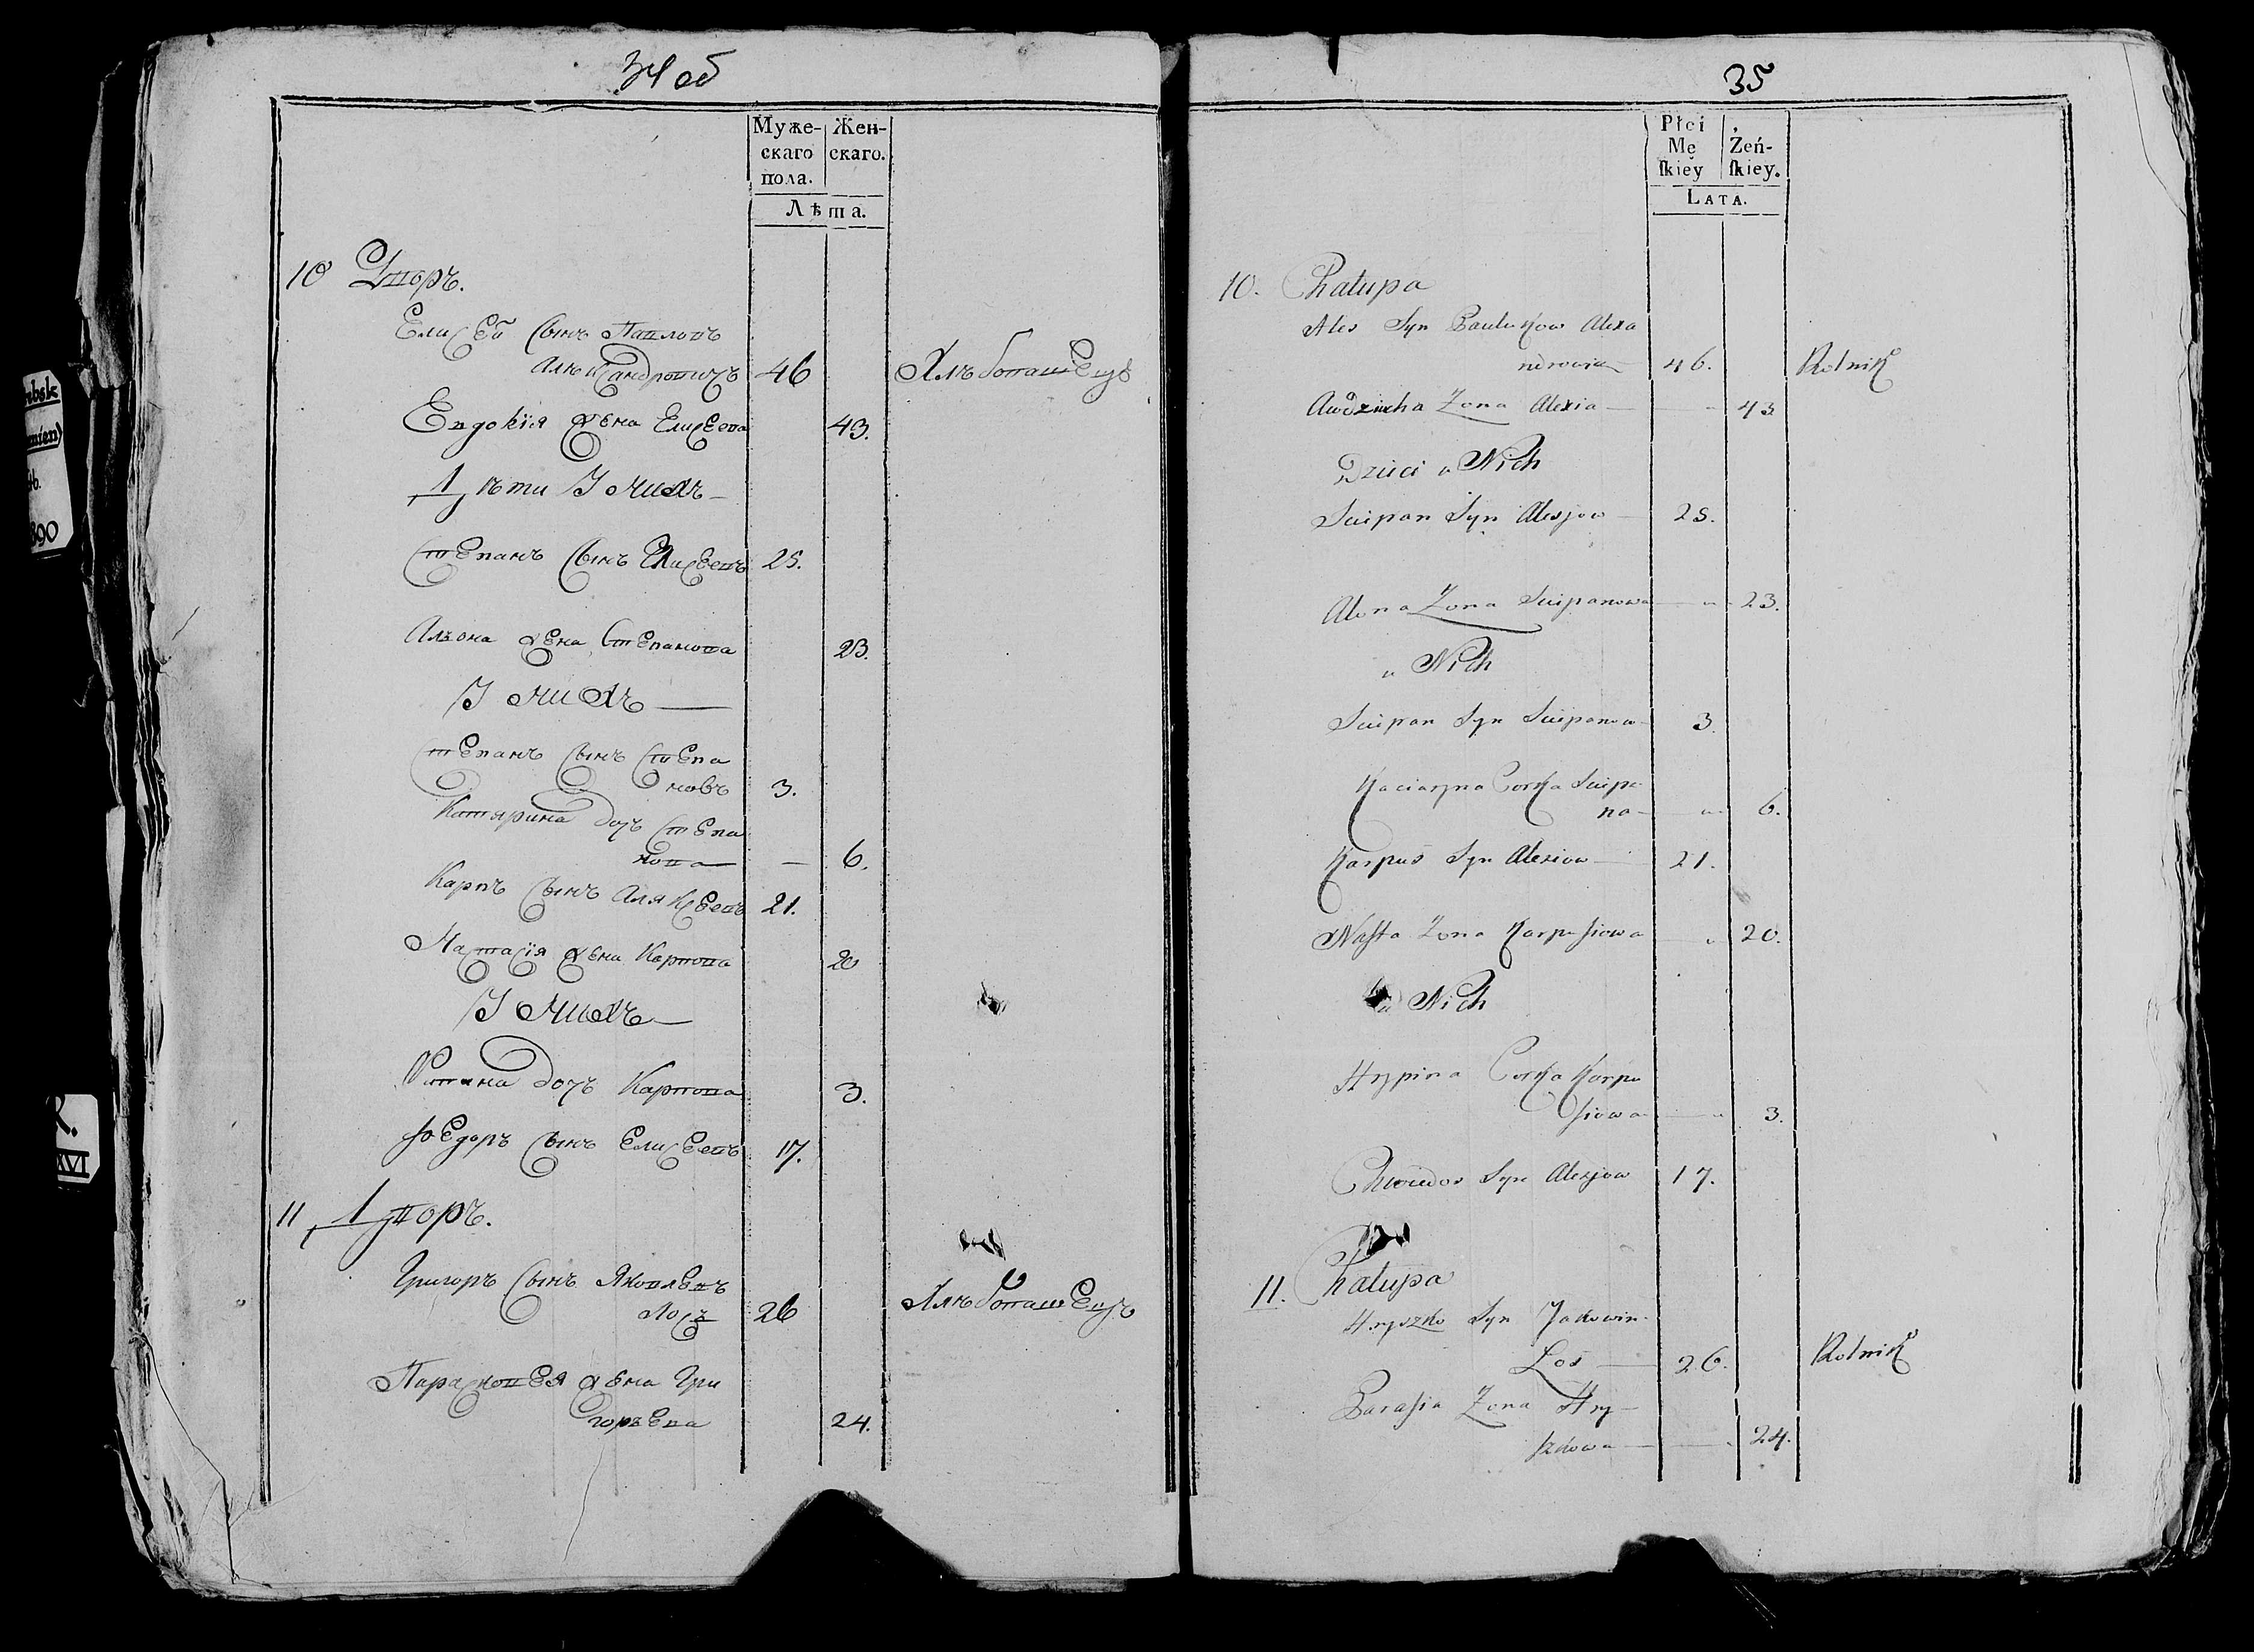 34 об
Муже-
скаго
пола.
Жен-
скаго.
Лѣта.
10 Дворъ.
Елисей сынъ Павловъ
Александровичъ 46 Хлѣбопашецъ
Евдокїя жена Елисеева 43.
Дѣти У нихъ
Степанъ сынъ Елисеевъ 25.
Алѣона жена Степанова 23.
У нихъ
Степанъ сынъ Степа
новъ 3.
Катярина дочъ Степа
нова — 6.
Карпъ сынъ Алякseевъ 21.
Настасїя жена Карпова 20
У нихъ
дочъ Карпова 3.
Федоръ сынъ Елисеевъ 17.
11 Дворъ.
Григоръ сынъ Яковлевъ
Лосъ 26 Хлѣбопашецъ
Парасковея жена Гри
горъева 24.
35
Płci
Mę
ſkiey
Żeń-
ſkiey.
LATA.
10. Chałupa
Ales Syn Paulukow Alexa
ndrowicz 46. Rolnik
Awdziucha Zona Alexia — 43
Dzieci u Nich
Sciepan Syn Alesjow 25.
Alona Zona Sciepanowa 23.
u Nich
Sciepan Syn Sciepanow 3.
Kaciaryna Corka Sciepa
na 6.
Karpus Syn Alexiow 21.
Naſta Zona Karpuſiowa 20.
u Nich
Hrypina Corka Karpu
ſiowa 3.
Chwiedor Syn Alesjow 17.
11. Chałupa
Hryszko Syn Jakowin
Łos 26. Rolnik
Paraſia Zona Hry
ſzkowa 24.